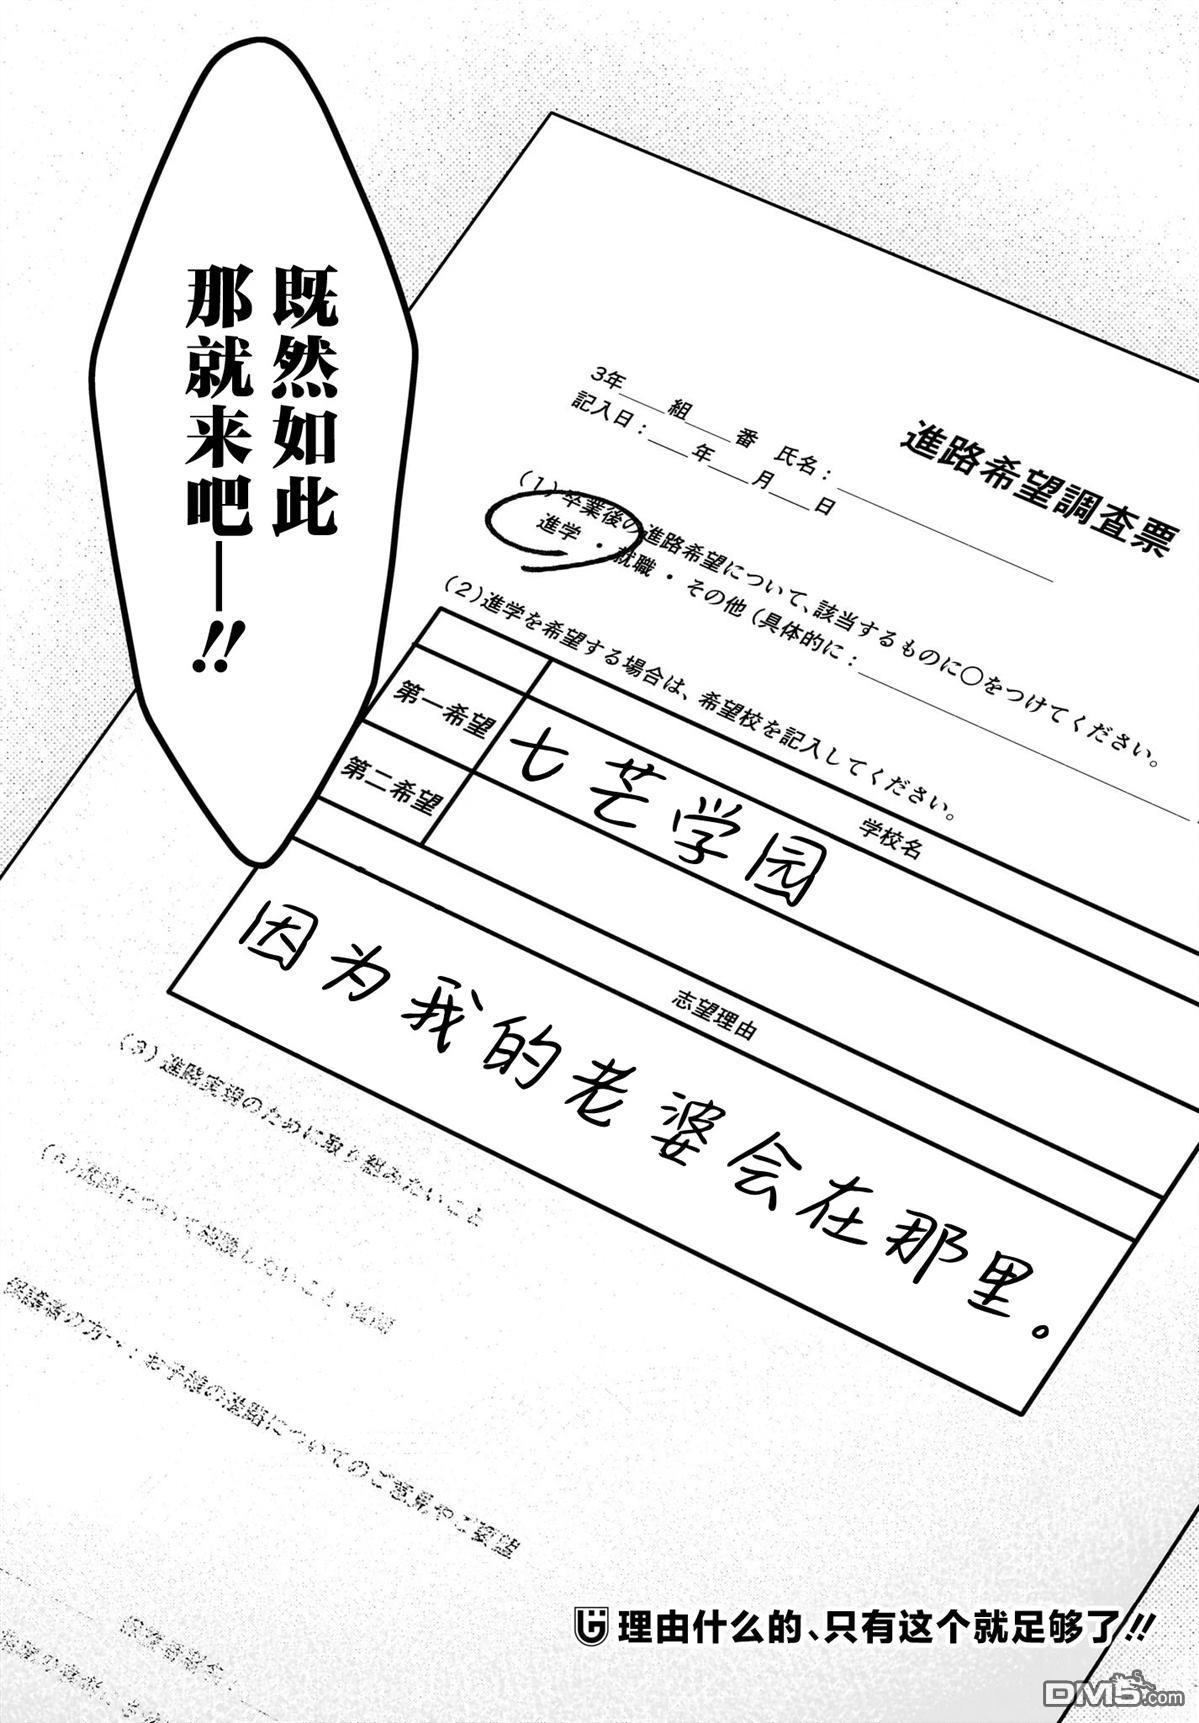 既然如此
那就来吧—!!
進路希望調査票
3年____組____番 氏名：____________
記入日：____年____月____日
(1)卒業後の進路希望について、該当するものに〇をつけてください。
進学・就職・その他（具体的に：____________
(2)進学を希望する場合は、希望校を記入してください。
学校名
第一希望
七芒学园
第二希望
志望理由
因为我的老婆会在那里。
(3)進路実現のために取り組みたいこと
進路について相談したいこと・質問
保護者の方へ：お子様の進路についてのご意見やご要望
理由什么的、只有这个就足够了!!
DM5.com